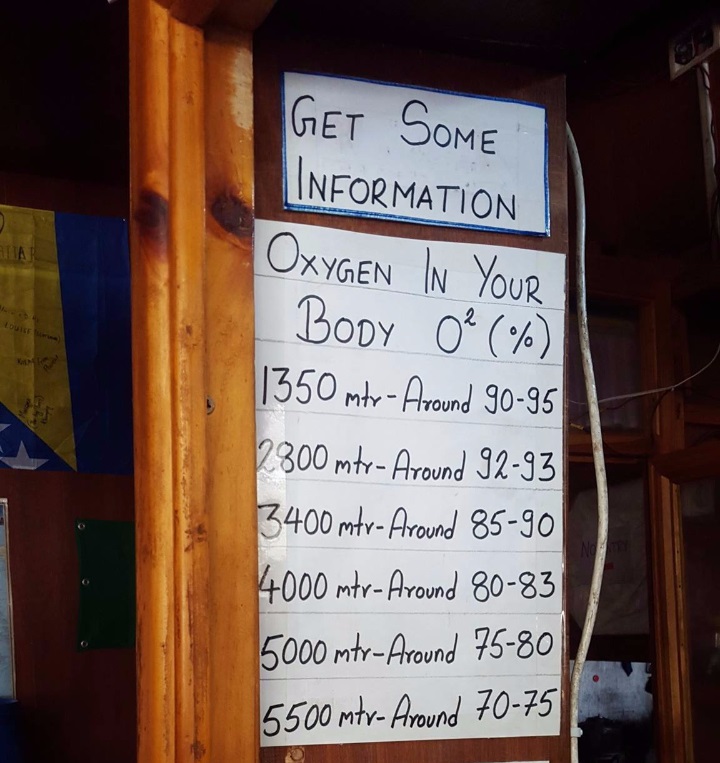 GET SOME
INFORMATION
OXYGEN IN YOUR
BODY O² (%)
1350 mtr-Around 90-95
2800 mtr-Around 92-93
3400 mtr-Around 85-90
4000 mtr-Around 80-83
5000 mtr-Around 75-80
5500 mtr-Around 70-75